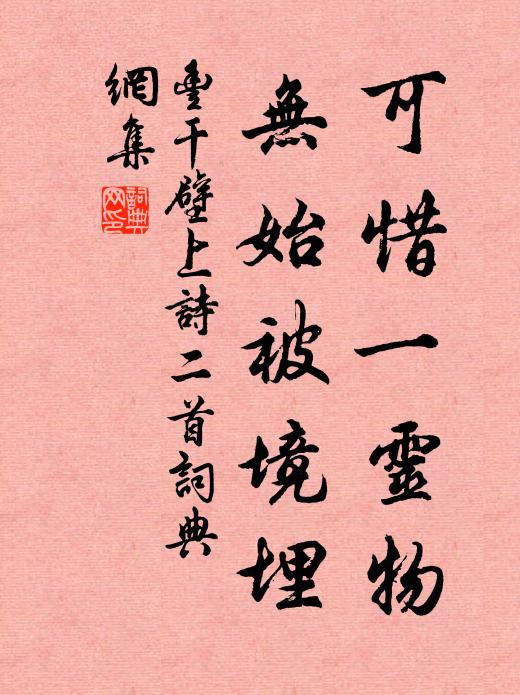 可惜一靈物
無始被境埋
豐干壁上詩二首詞典
網集
詞典
网印